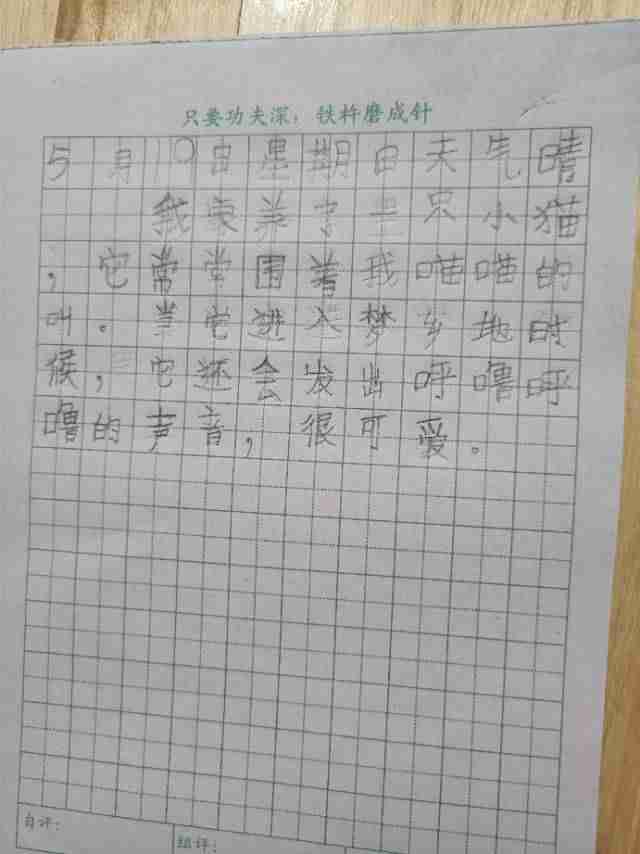 只要功夫深，铁杵磨成针
5月19日星期日天气晴
我家养了一只小猫
，它常常围着我喵喵的
叫。当它进入梦乡地时
候，它还会发出呼噜呼
噜的声音，很可爱。
自评：
组评：